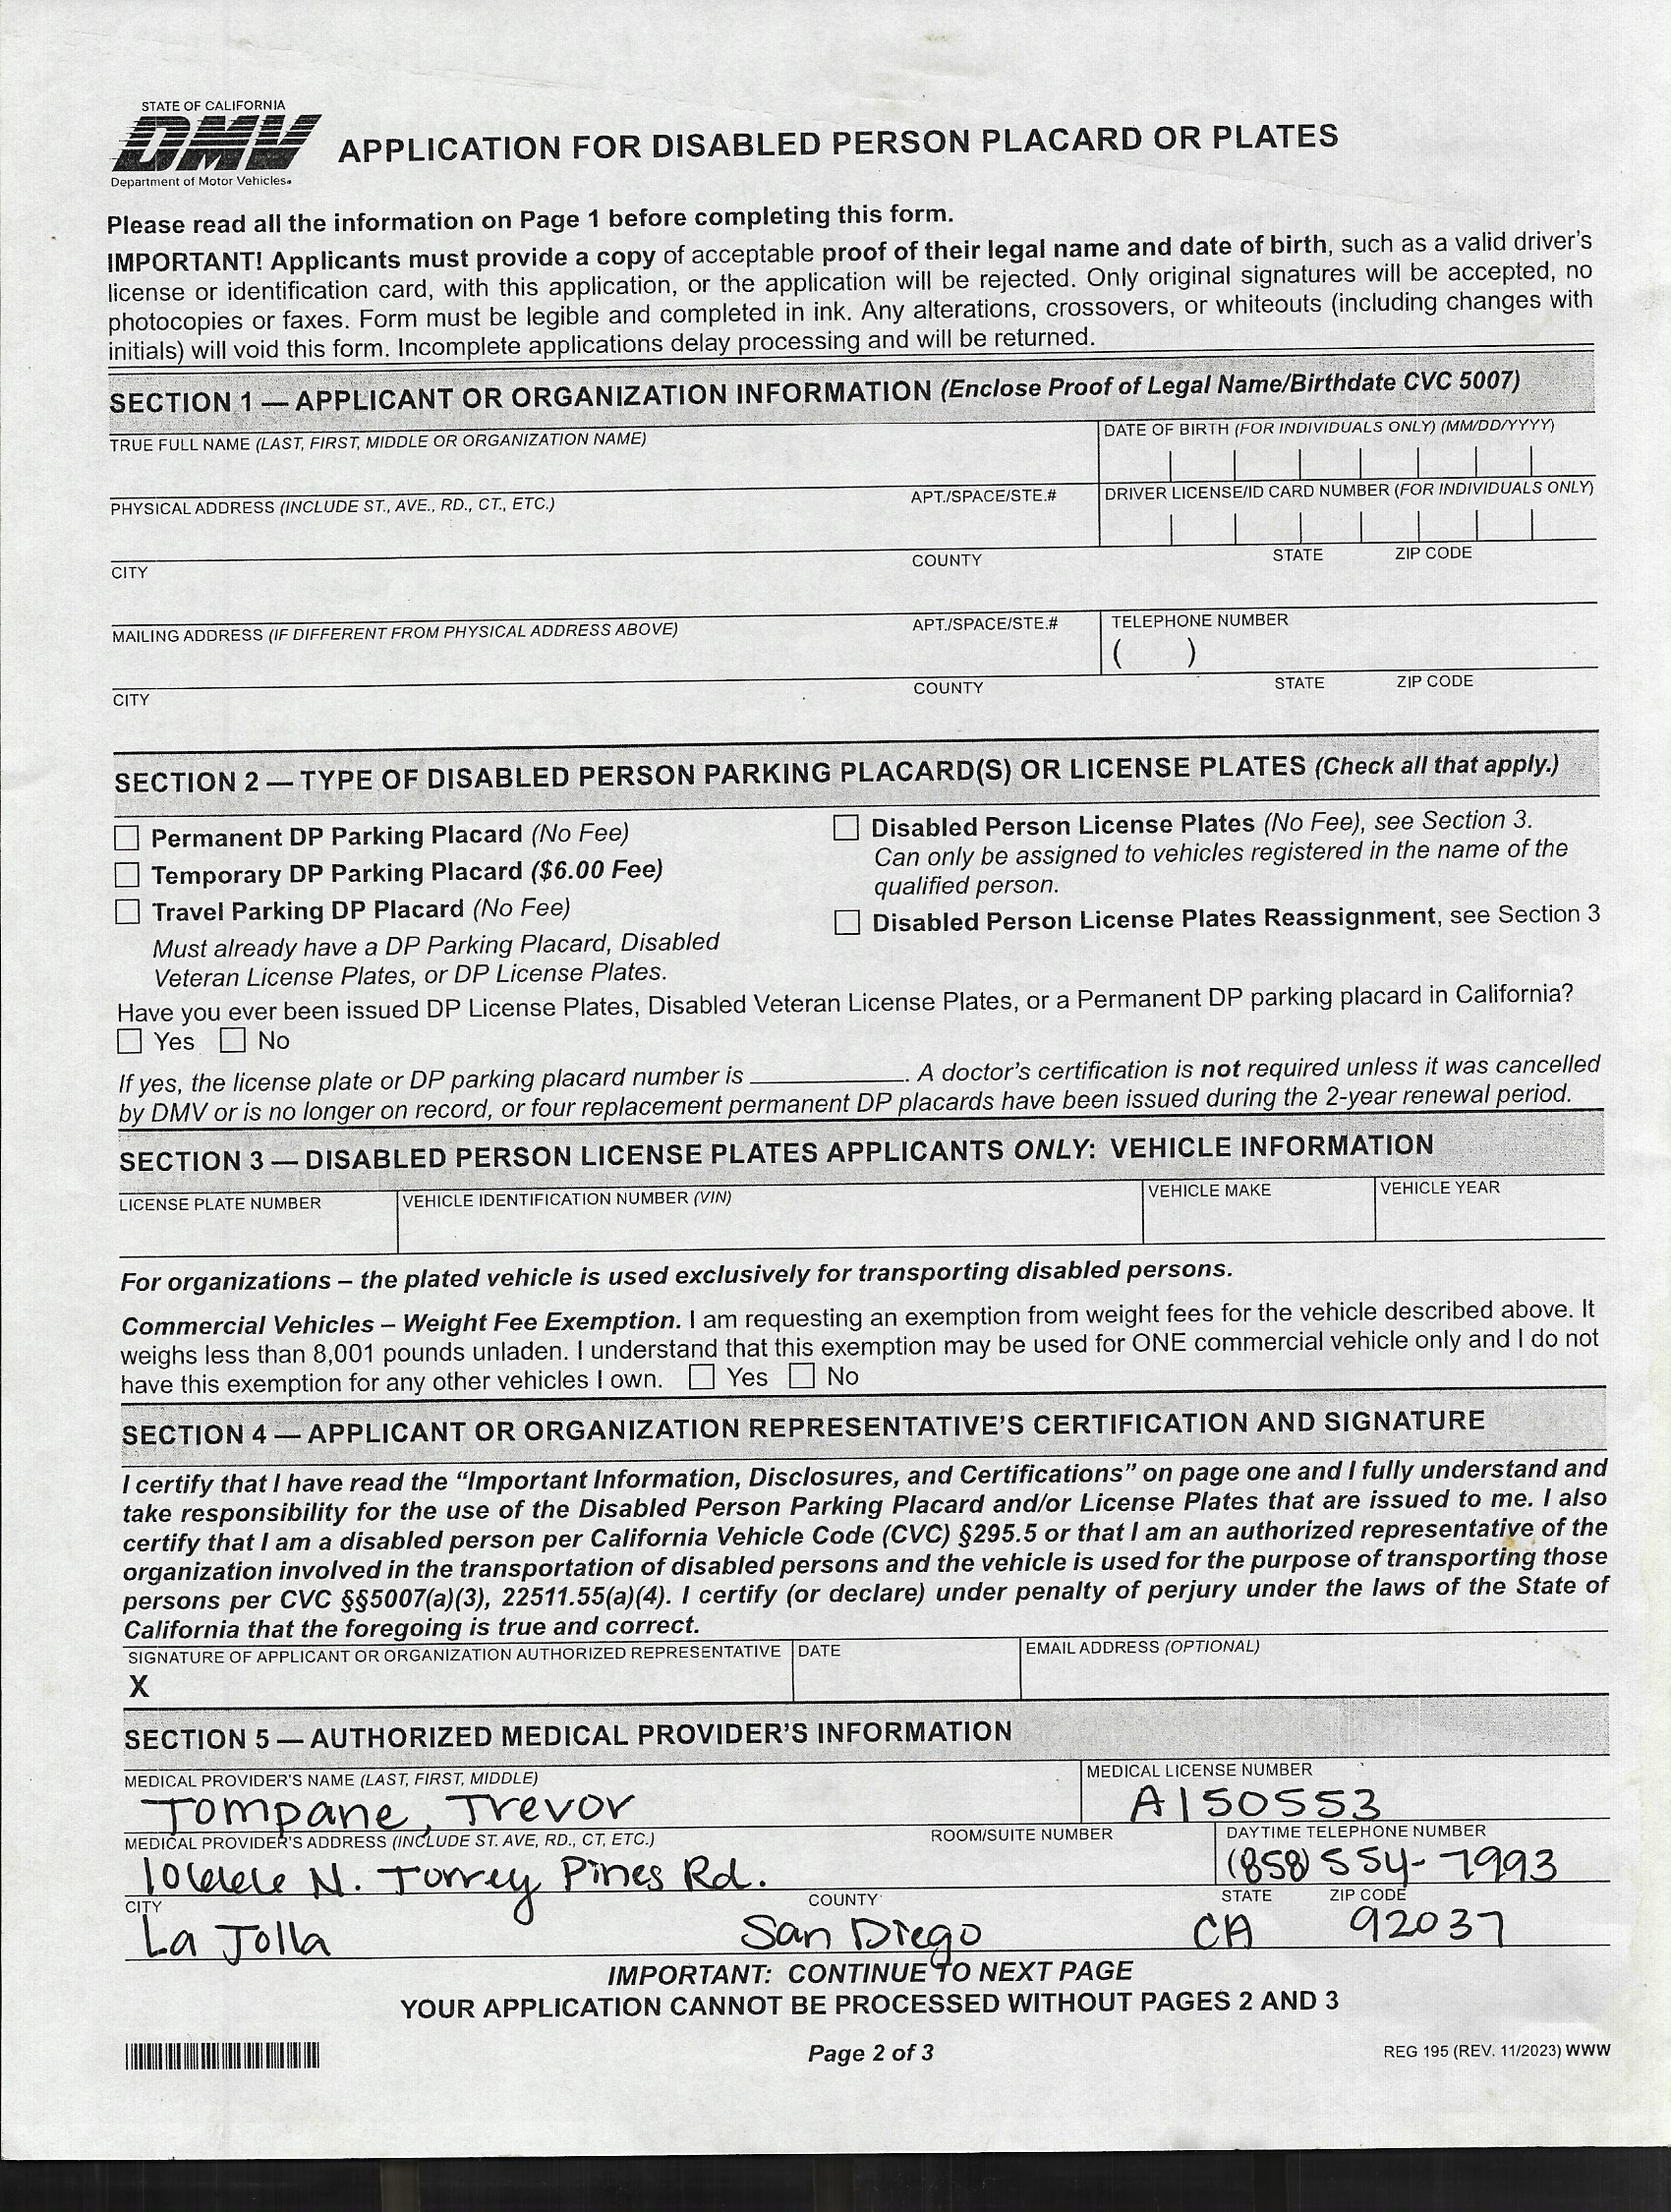 STATE OF CALIFORNIA
DMV
Department of Motor Vehicles.
APPLICATION FOR DISABLED PERSON PLACARD OR PLATES
Please read all the information on Page 1 before completing this form.
IMPORTANT! Applicants must provide a copy of acceptable proof of their legal name and date of birth, such as a valid driver's
license or identification card, with this application, or the application will be rejected. Only original signatures will be accepted, no
photocopies or faxes. Form must be legible and completed in ink. Any alterations, crossovers, or whiteouts (including changes with
initials) will void this form. Incomplete applications delay processing and will be returned.
SECTION 1 — APPLICANT OR ORGANIZATION INFORMATION (Enclose Proof of Legal Name/Birthdate CVC 5007)
TRUE FULL NAME (LAST, FIRST, MIDDLE OR ORGANIZATION NAME) DATE OF BIRTH (FOR INDIVIDUALS ONLY) (MM/DD/YYYY)
PHYSICAL ADDRESS (INCLUDE ST., AVE., RD., CT., ETC.) APT./SPACE/STE.# DRIVER LICENSE/ID CARD NUMBER (FOR INDIVIDUALS ONLY)
CITY COUNTY STATE ZIP CODE
MAILING ADDRESS (IF DIFFERENT FROM PHYSICAL ADDRESS ABOVE) APT./SPACE/STE.# TELEPHONE NUMBER
( )
CITY COUNTY STATE ZIP CODE
SECTION 2 — TYPE OF DISABLED PERSON PARKING PLACARD(S) OR LICENSE PLATES (Check all that apply.)
Permanent DP Parking Placard (No Fee)
Temporary DP Parking Placard ($6.00 Fee)
Travel Parking DP Placard (No Fee)
Must already have a DP Parking Placard, Disabled
Veteran License Plates, or DP License Plates.
Disabled Person License Plates (No Fee), see Section 3.
Can only be assigned to vehicles registered in the name of the
qualified person.
Disabled Person License Plates Reassignment, see Section 3
Have you ever been issued DP License Plates, Disabled Veteran License Plates, or a Permanent DP parking placard in California?
Yes No
If yes, the license plate or DP parking placard number is ___________. A doctor's certification is not required unless it was cancelled
by DMV or is no longer on record, or four replacement permanent DP placards have been issued during the 2-year renewal period.
SECTION 3 — DISABLED PERSON LICENSE PLATES APPLICANTS ONLY: VEHICLE INFORMATION
LICENSE PLATE NUMBER VEHICLE IDENTIFICATION NUMBER (VIN) VEHICLE MAKE VEHICLE YEAR
For organizations – the plated vehicle is used exclusively for transporting disabled persons.
Commercial Vehicles – Weight Fee Exemption. I am requesting an exemption from weight fees for the vehicle described above. It
weighs less than 8,001 pounds unladen. I understand that this exemption may be used for ONE commercial vehicle only and I do not
have this exemption for any other vehicles I own. Yes No
SECTION 4 — APPLICANT OR ORGANIZATION REPRESENTATIVE'S CERTIFICATION AND SIGNATURE
I certify that I have read the "Important Information, Disclosures, and Certifications" on page one and I fully understand and
take responsibility for the use of the Disabled Person Parking Placard and/or License Plates that are issued to me. I also
certify that I am a disabled person per California Vehicle Code (CVC) §295.5 or that I am an authorized representative of the
organization involved in the transportation of disabled persons and the vehicle is used for the purpose of transporting those
persons per CVC §§5007(a)(3), 22511.55(a)(4). I certify (or declare) under penalty of perjury under the laws of the State of
California that the foregoing is true and correct.
SIGNATURE OF APPLICANT OR ORGANIZATION AUTHORIZED REPRESENTATIVE DATE EMAIL ADDRESS (OPTIONAL)
X
SECTION 5 — AUTHORIZED MEDICAL PROVIDER'S INFORMATION
MEDICAL PROVIDER'S NAME (LAST, FIRST, MIDDLE) MEDICAL LICENSE NUMBER
Tompane, Trevor A150553
MEDICAL PROVIDER'S ADDRESS (INCLUDE ST. AVE, RD., CT, ETC.) ROOM/SUITE NUMBER DAYTIME TELEPHONE NUMBER
10666 N. Torrey Pines Rd. (858) 554-7993
CITY COUNTY STATE ZIP CODE
La Jolla San Diego CA 92037
IMPORTANT: CONTINUE TO NEXT PAGE
YOUR APPLICATION CANNOT BE PROCESSED WITHOUT PAGES 2 AND 3
Page 2 of 3
REG 195 (REV. 11/2023) WWW